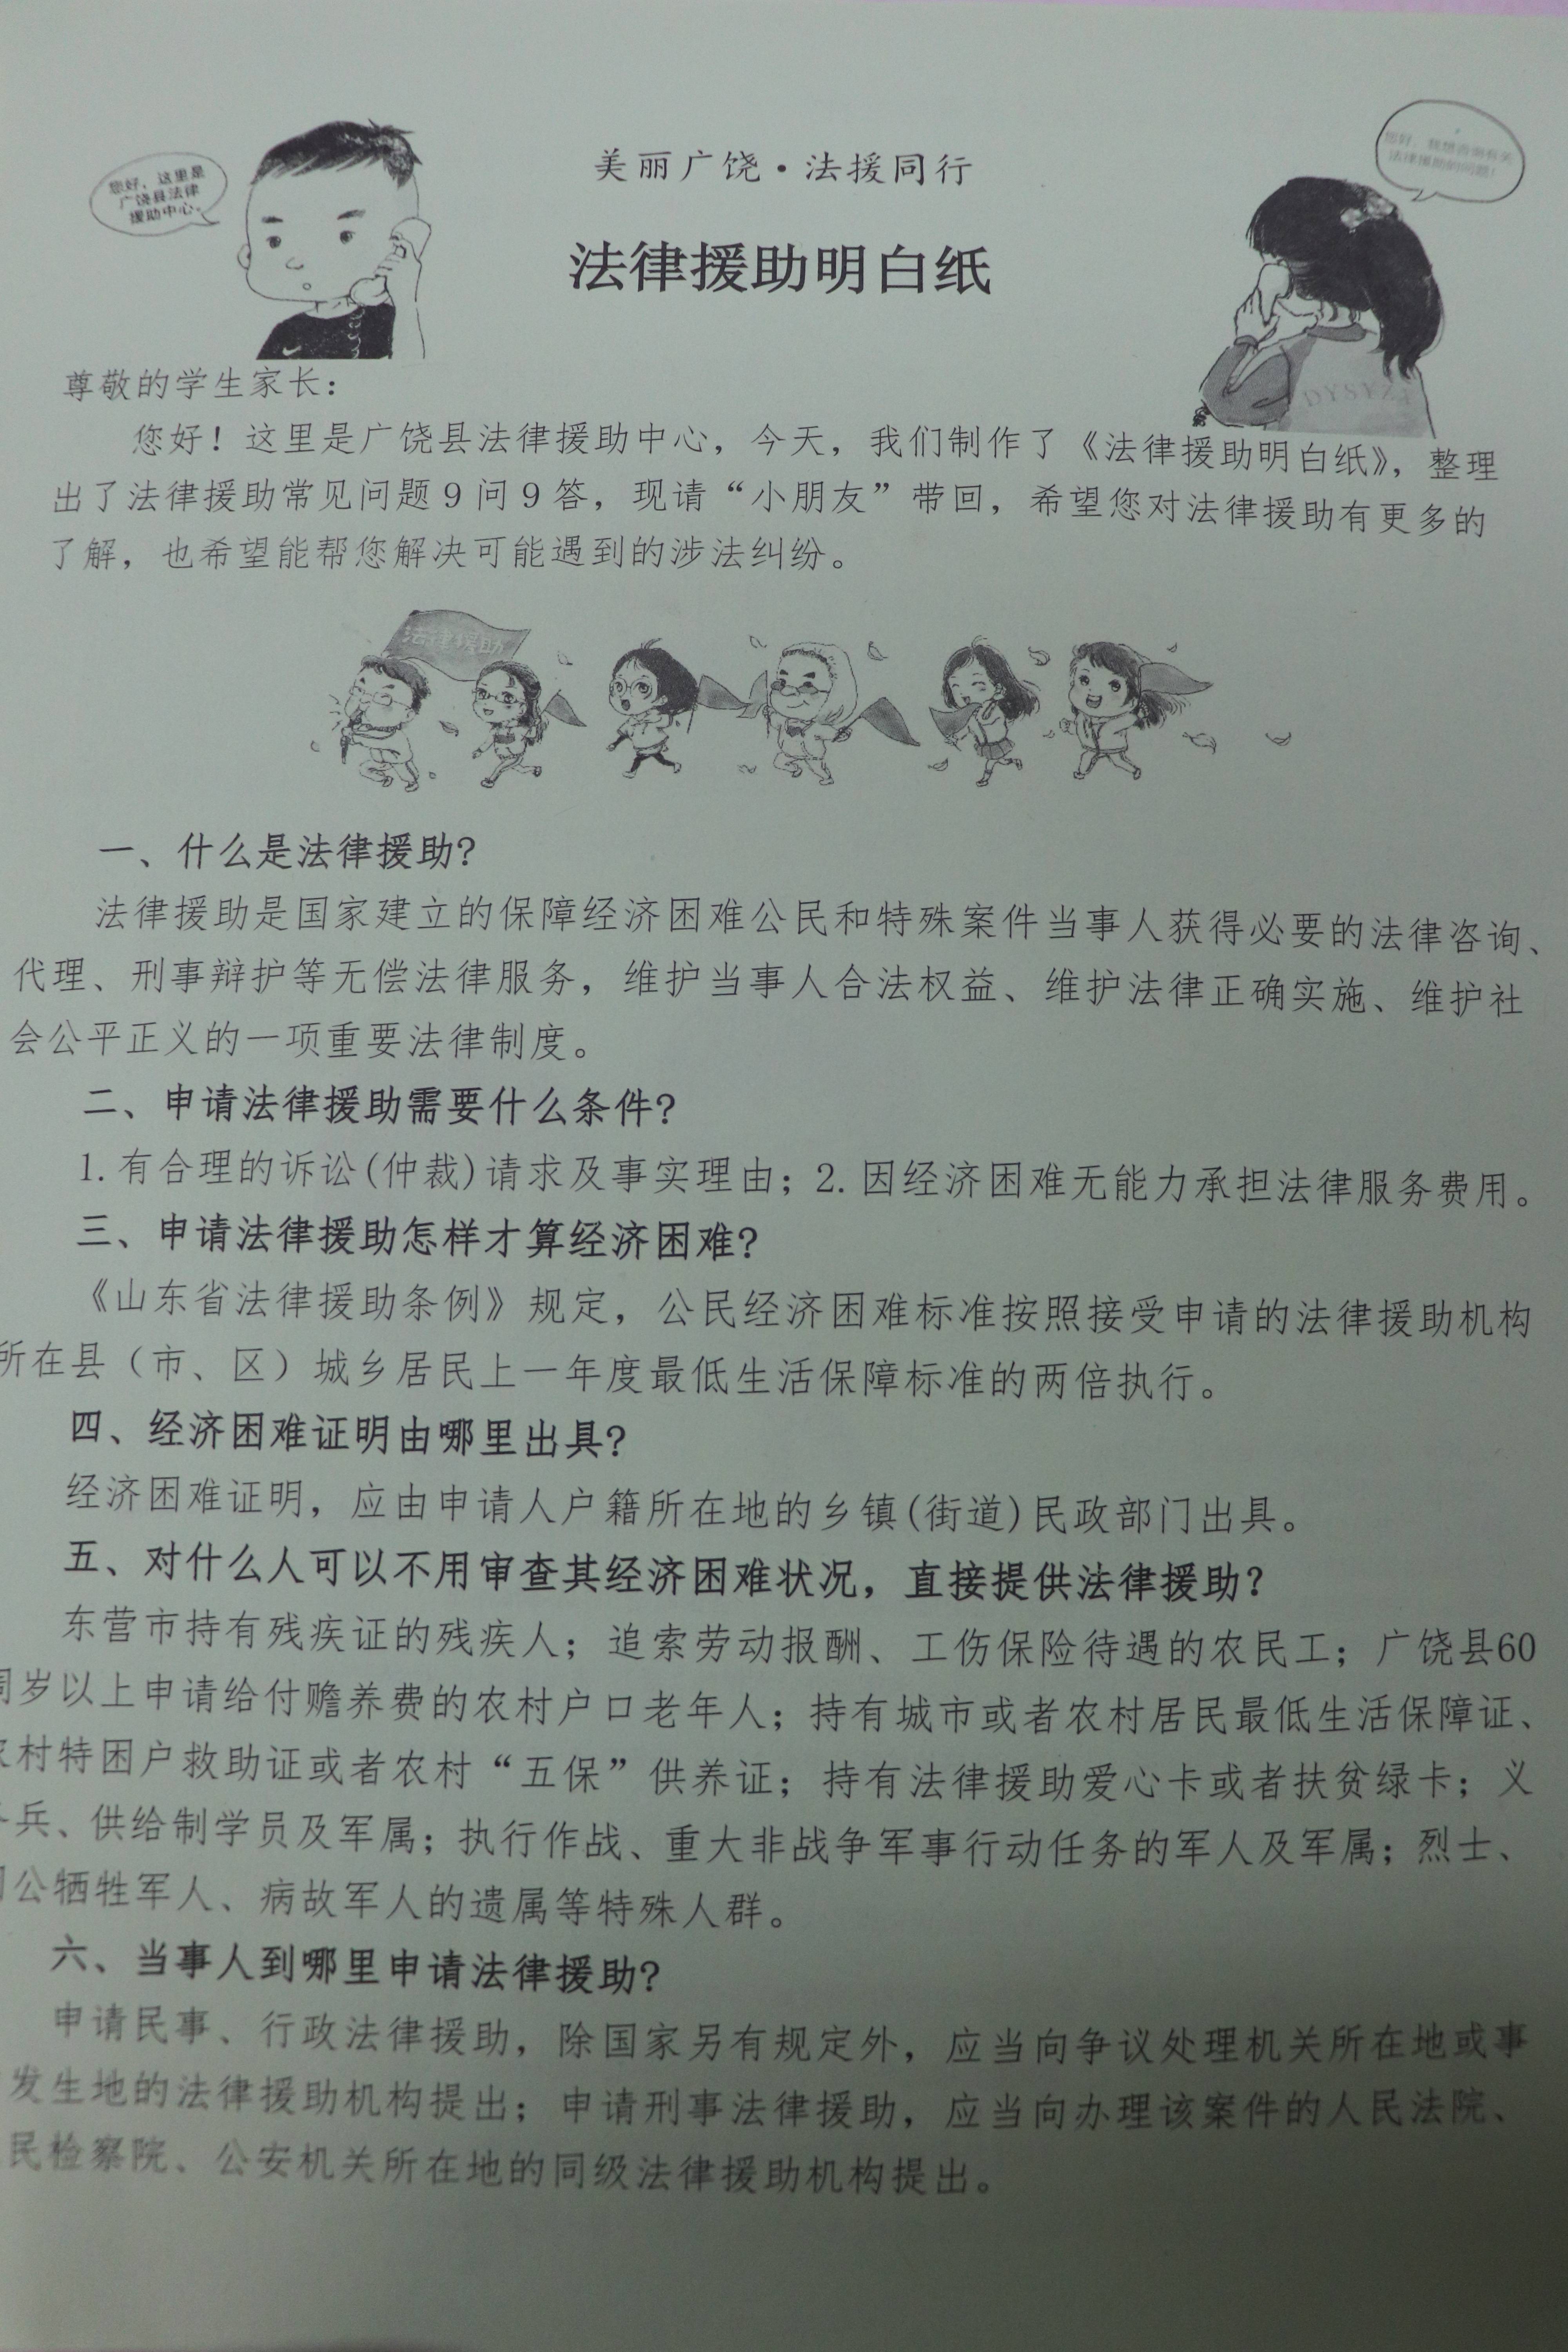 美丽广饶·法援同行
您好，这里是
广饶县法律
援助中心。
您好，我想咨询有关
法律援助的问题！
法律援助明白纸
DYSYZX
尊敬的学生家长：
您好！这里是广饶县法律援助中心，今天，我们制作了《法律援助明白纸》，整理
出了法律援助常见问题9问9答，现请“小朋友”带回，希望您对法律援助有更多的
了解，也希望能帮您解决可能遇到的涉法纠纷。
法律援助
一、什么是法律援助?
法律援助是国家建立的保障经济困难公民和特殊案件当事人获得必要的法律咨询、
代理、刑事辩护等无偿法律服务，维护当事人合法权益、维护法律正确实施、维护社
会公平正义的一项重要法律制度。
二、申请法律援助需要什么条件?
1.有合理的诉讼(仲裁)请求及事实理由；2.因经济困难无能力承担法律服务费用。
三、申请法律援助怎样才算经济困难?
《山东省法律援助条例》规定，公民经济困难标准按照接受申请的法律援助机构
所在县（市、区）城乡居民上一年度最低生活保障标准的两倍执行。
四、经济困难证明由哪里出具?
经济困难证明，应由申请人户籍所在地的乡镇(街道)民政部门出具。
五、对什么人可以不用审查其经济困难状况，直接提供法律援助？
东营市持有残疾证的残疾人；追索劳动报酬、工伤保险待遇的农民工；广饶县60
周岁以上申请给付赡养费的农村户口老年人；持有城市或者农村居民最低生活保障证、
农村特困户救助证或者农村“五保”供养证；持有法律援助爱心卡或者扶贫绿卡；义
务兵、供给制学员及军属；执行作战、重大非战争军事行动任务的军人及军属；烈士、
公牺牲军人、病故军人的遗属等特殊人群。
六、当事人到哪里申请法律援助?
申请民事、行政法律援助，除国家另有规定外，应当向争议处理机关所在地或事
发生地的法律援助机构提出；申请刑事法律援助，应当向办理该案件的人民法院、
民检察院、公安机关所在地的同级法律援助机构提出。